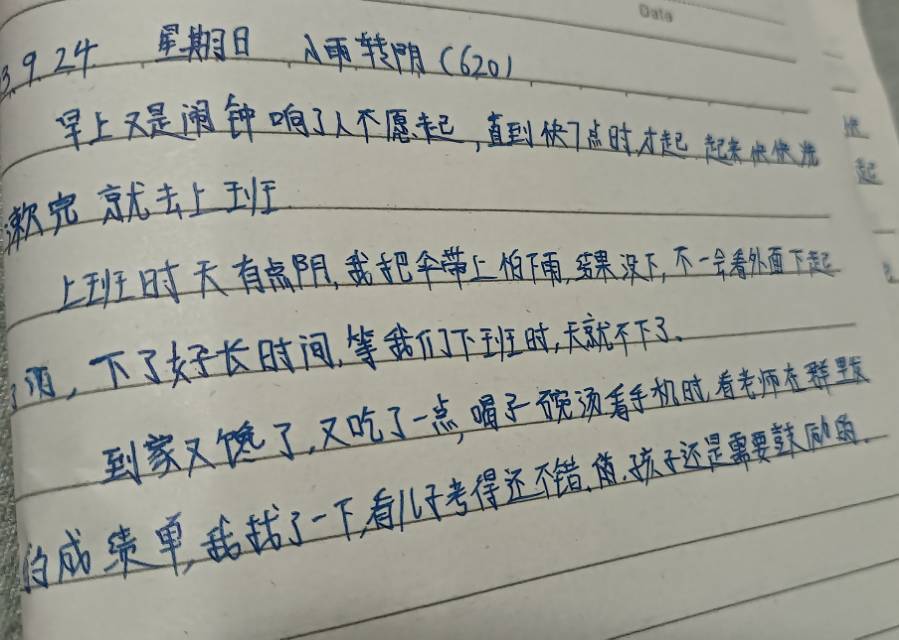 Date
3.9.24 星期日 小雨转阴(620)
早上又是闹钟响了人不愿起,直到快7点时才起 起来快快洗
漱完 就去上班
上班时天有点阴,我把伞带上怕下雨,结果没下,不一会看外面下起
了雨,下了好长时间,等我们下班时,天就不下了。
到家又馋了,又吃了一点,喝了碗汤看手机时,看老师在群里发
的成绩单,我找了一下,看儿子考得还不错,孩子还是需要鼓励的.
快
起